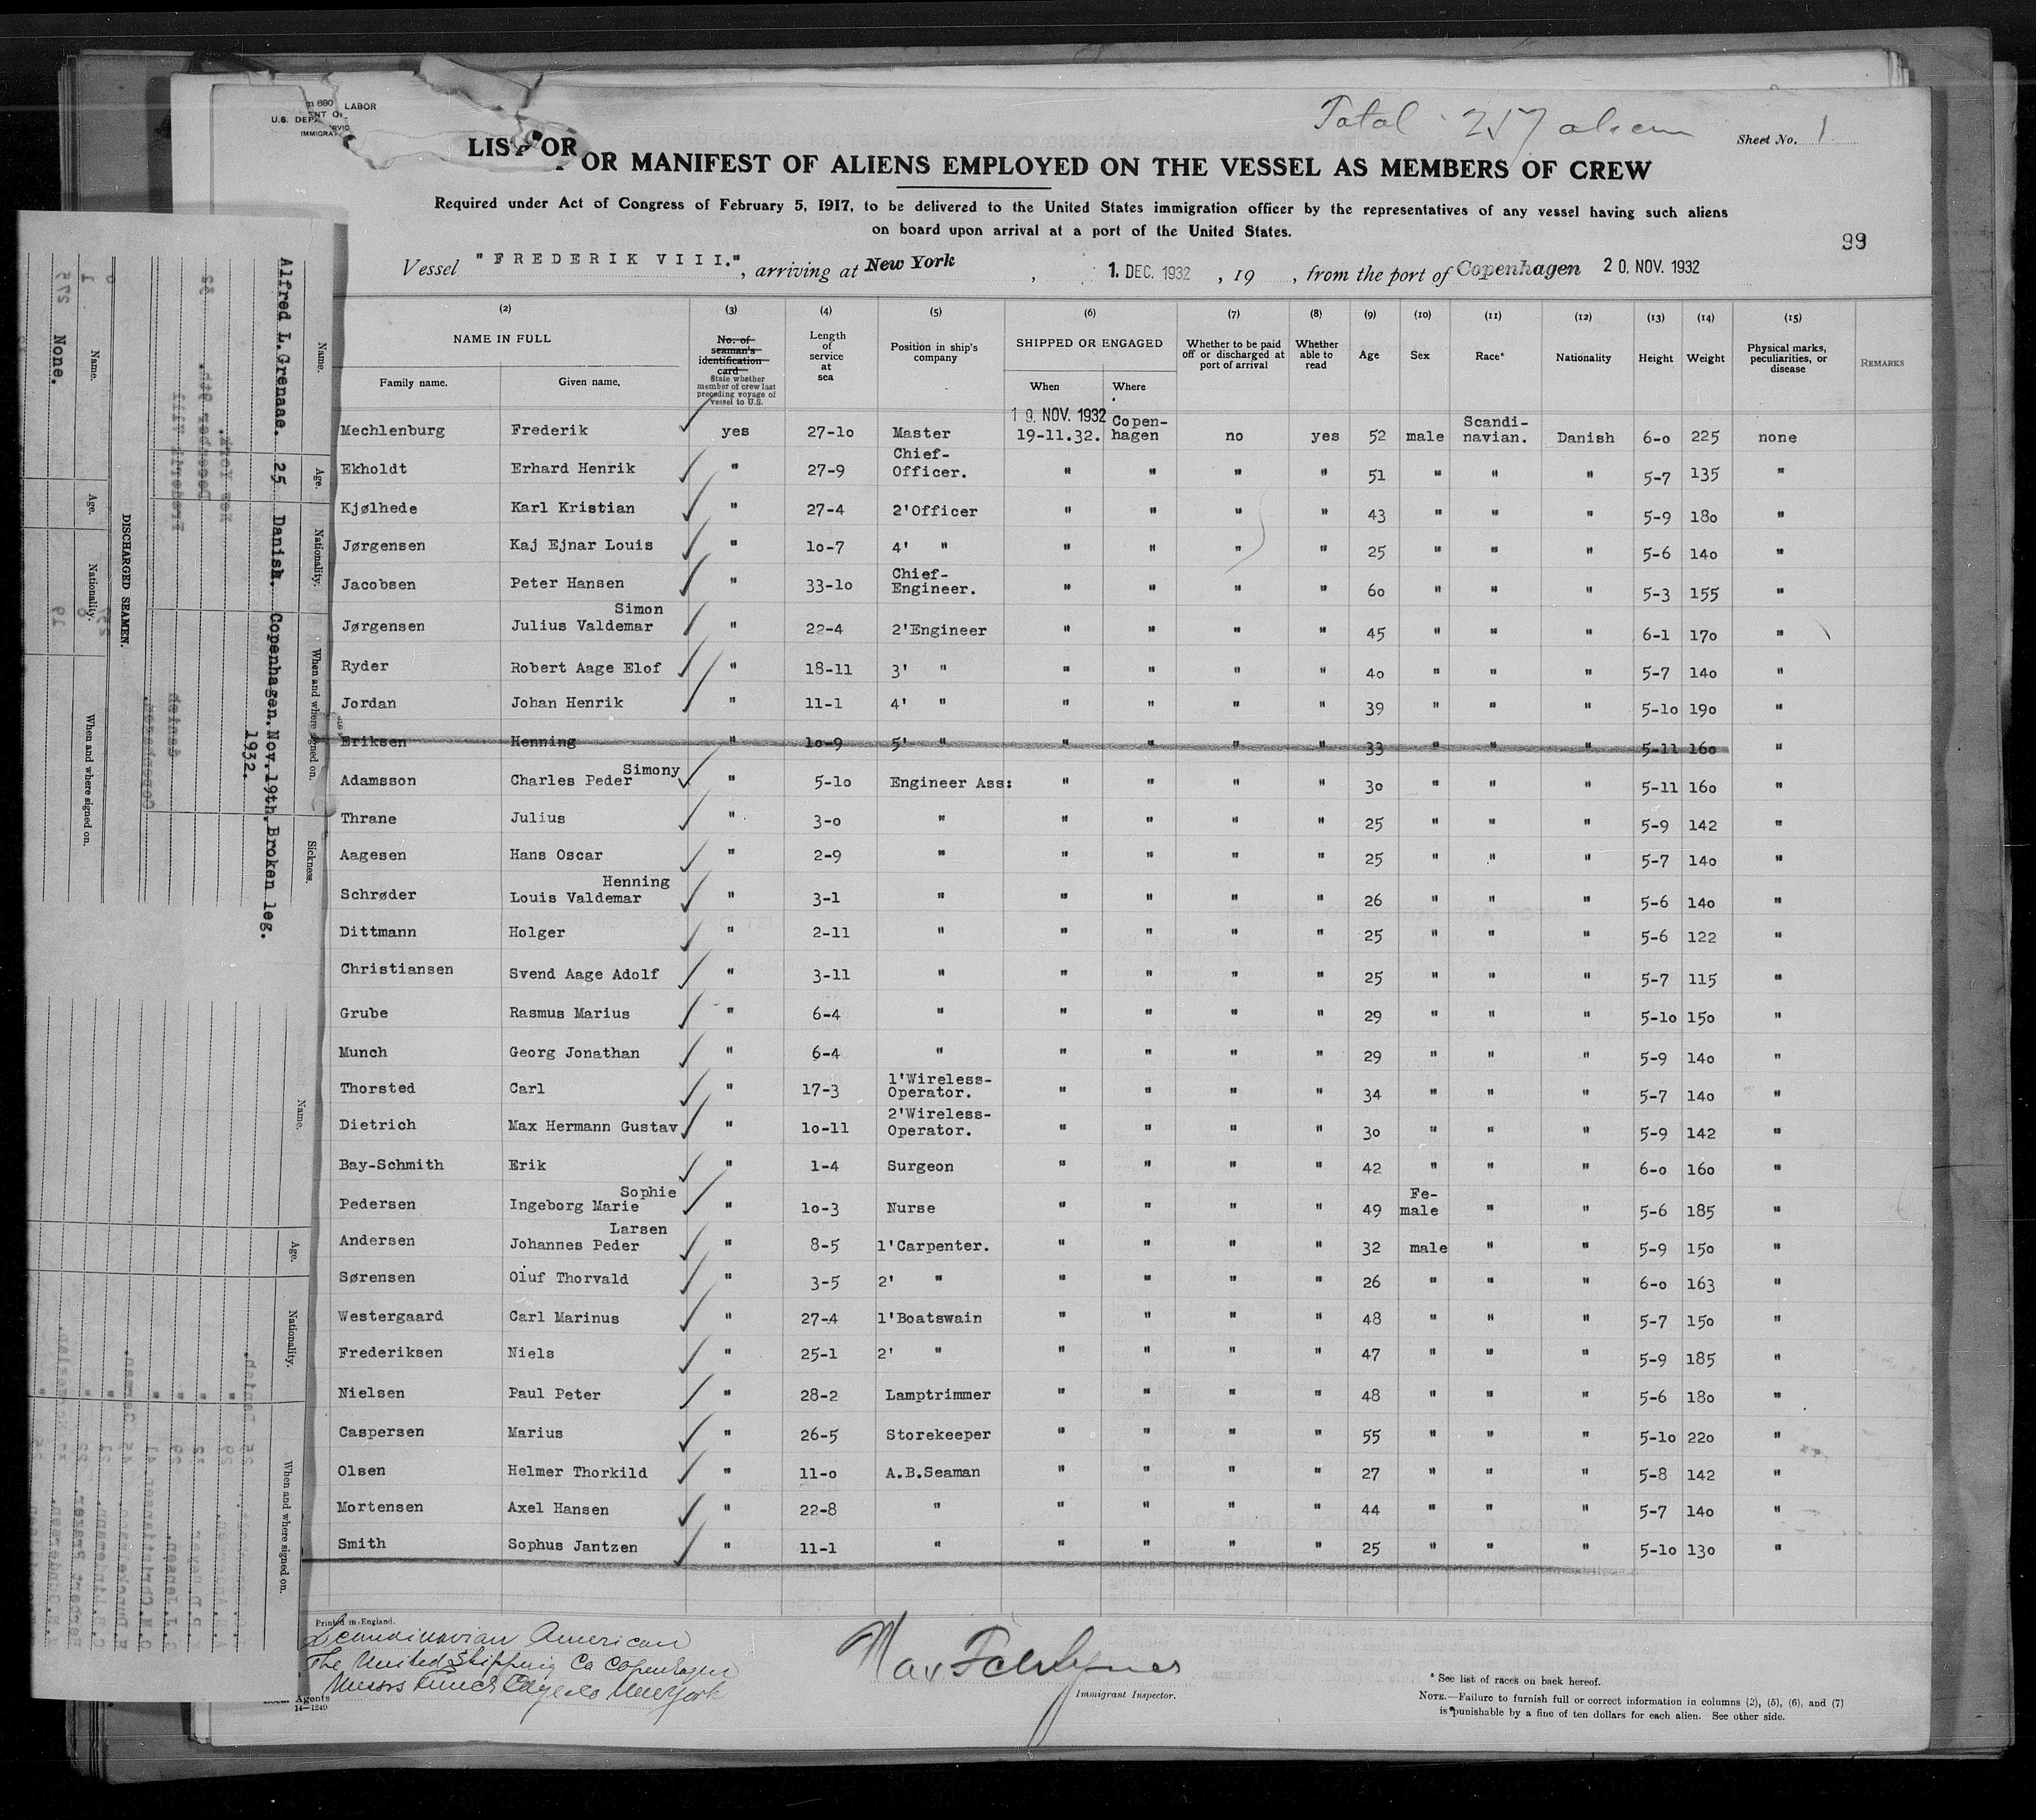 Total 257 aliens
Sheet No. 1
LABOR
U.S. DEPA
IMMIGRAT
LIST OR
OR MANIFEST OF ALIENS EMPLOYED ON THE VESSEL AS MEMBERS OF CREW
Required under Act of Congress of February 5, 1917, to be delivered to the United States immigration officer by the representatives of any vessel having such aliens
on board upon arrival at a port of the United States.
99
Vessel "FREDERIK VIII.", arriving at New York, 1. DEC. 1932, 19 , from the port of Copenhagen 20. NOV. 1932
(2) (3) (4) (5) (6) (7) (8) (9) (10) (11) (12) (13) (14) (15)
NAME IN FULL
Family name. Given name.
No. of seaman's identification card
State whether member of crew last preceding voyage of vessel to U.S.
Length of service at sea
Position in ship's company
SHIPPED OR ENGAGED
When Where
Whether to be paid off or discharged at port of arrival
Whether able to read
Age Sex Race* Nationality Height Weight
Physical marks, peculiarities, or disease
REMARKS
19. NOV. 1932
Mechlenburg Frederik yes 27-10 Master 19-11.32. Copen-hagen no yes 52 male Scandi-navian. Danish 6-0 225 none
Ekholdt Erhard Henrik " 27-9 Chief-Officer. " " " " 51 " " " 5-7 135 "
Kjølhede Karl Kristian " 27-4 2'Officer " " " " 43 " " " 5-9 180 "
Jørgensen Kaj Ejnar Louis " 10-7 4' " " " " " 25 " " " 5-6 140 "
Jacobsen Peter Hansen " 33-10 Chief-Engineer. " " " " 60 " " " 5-3 155 "
Jørgensen Julius Valdemar Simon " 22-4 2'Engineer " " " " 45 " " " 6-1 170 "
Ryder Robert Aage Elof " 18-11 3' " " " " " 40 " " " 5-7 140 "
Jordan Johan Henrik " 11-1 4' " " " " " 39 " " " 5-10 190 "
Eriksen Henning " 10-9 5' " " " " " 33 " " " 5-11 160 "
Adamsson Charles Peder Simony " 5-10 Engineer Ass: " " " " 30 " " " 5-11 160 "
Thrane Julius " 3-0 " " " " " 25 " " " 5-9 142 "
Aagesen Hans Oscar " 2-9 " " " " " 25 " " " 5-7 140 "
Schrøder Louis Valdemar Henning " 3-1 " " " " " 26 " " " 5-6 140 "
Dittmann Holger " 2-11 " " " " " 25 " " " 5-6 122 "
Christiansen Svend Aage Adolf " 3-11 " " " " " 25 " " " 5-7 115 "
Grube Rasmus Marius " 6-4 " " " " " 29 " " " 5-10 150 "
Munch Georg Jonathan " 6-4 " " " " " 29 " " " 5-9 140 "
Thorsted Carl " 17-3 1'Wireless-Operator. " " " " 34 " " " 5-7 140 "
Dietrich Max Hermann Gustav " 10-11 2'Wireless-Operator. " " " " 30 " " " 5-9 142 "
Bay-Schmith Erik " 1-4 Surgeon " " " " 42 " " " 6-0 160 "
Pedersen Ingeborg Marie Sophie " 10-3 Nurse " " " " 49 Fe-male " " 5-6 185 "
Andersen Johannes Peder Larsen " 8-5 1'Carpenter. " " " " 32 male " " 5-9 150 "
Sørensen Oluf Thorvald " 3-5 2' " " " " " 26 " " " 6-0 163 "
Westergaard Carl Marinus " 27-4 1'Boatswain " " " " 48 " " " 5-7 150 "
Frederiksen Niels " 25-1 2' " " " " " 47 " " " 5-9 185 "
Nielsen Paul Peter " 28-2 Lamptrimmer " " " " 48 " " " 5-6 180 "
Caspersen Marius " 26-5 Storekeeper " " " " 55 " " " 5-10 220 "
Olsen Helmer Thorkild " 11-0 A.B.Seaman " " " " 27 " " " 5-8 142 "
Mortensen Axel Hansen " 22-8 " " " " " 44 " " " 5-7 140 "
Smith Sophus Jantzen " 11-1 " " " " " 25 " " " 5-10 130 "
Printed in England.
Scandinavian American
The United Shipping Co Copenhagen
Messrs Funch Edye & Co New York
Local Agents
14—1240
Immigrant Inspector.
* See list of races on back hereof.
NOTE.—Failure to furnish full or correct information in columns (2), (5), (6), and (7)
is punishable by a fine of ten dollars for each alien. See other side.
Name. Age. Nationality. When and where signed on. Sickness.
Alfred L. Grenaae. 25 Danish. Copenhagen. Nov. 19th. Broken leg.
1932.
DISCHARGED SEAMEN.
Name. Age. Nationality. When and where signed on.
None.
Name. Age. Nationality. When and where signed on.